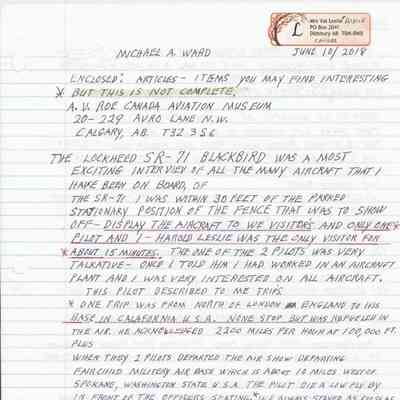 L
Mrs Val Leslie HAROLD
PO Box 2041
Didsbury AB T0M 0W0
CANADA
MICHAEL A. WARD
JUNE 10/2018
ENCLOSED: ARTICLES - ITEMS YOU MAY FIND INTERESTING
* BUT THIS IS NOT COMPLETE.
A.V. ROE CANADA AVIATION MUSEUM
20-229 AVRO LANE N.W.
CALGARY, AB. T3Z 3S6
THE LOCKHEED SR-71 BLACKBIRD WAS A MOST
EXCITING INTERVIEW OF ALL THE MANY AIRCRAFT THAT I
HAVE BEEN ON BOARD, OF
THE SR-71 I WAS WITHIN 30 FEET OF THE PARKED
STATIONARY POSITION OF THE FENCE THAT WAS TO SHOW
OFF - DISPLAY THE AIRCRAFT TO WE VISITOR'S AND ONLY ONE *
PILOT AND I - HAROLD LESLIE WAS THE ONLY VISITOR FOR
* ABOUT 15 MINUTES. THE ONE OF THE 2 PILOTS WAS VERY
TALKATIVE - ONCE I TOLD HIM I HAD WORKED IN AN AIRCRAFT
PLANT AND I WAS VERY INTERESTED ON ALL AIRCRAFT.
THIS PILOT DESCRIBED TO ME TRIPS
* ONE TRIP WAS FROM NORTH OF LONDON ENGLAND TO HIS
BASE IN CALAFORNIA U.S.A. NONE STOP BUT WAS REFUELED IN
THE AIR. HE ACKNOWLEDGED 2200 MILES PER HOUR AT 100,000 FT.
PLUS
WHEN THEY 2 PILOTS DEPARTED THE AIR SHOW DEPARING
FAIRCHILD MILITARY AIR BASE WHICH IS ABOUT 10 MILES WEST OF
SPOKANE, WASHINGTON STATE U.S.A. THE PILOT DID A LOW FLY BY
IN FRONT OF THE OFFICERS SEATING. * WE ALWAYS STAYED AS